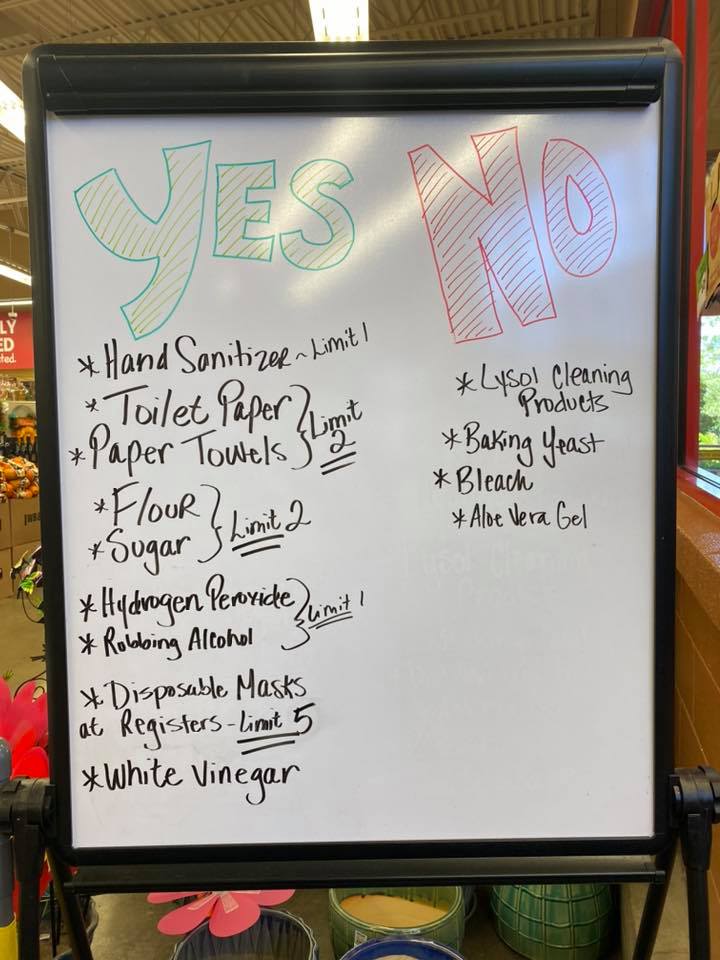 YES
* Hand Sanitizer ~ Limit 1
* Toilet Paper
* Paper Towels
Limit
2
* Flour
* Sugar
Limit 2
* Hydrogen Peroxide
* Robbing Alcohol
Limit 1
* Disposable Masks
at Registers - Limit 5
* White Vinegar
NO
* Lysol Cleaning
Products
* Baking Yeast
* Bleach
* Aloe Vera Gel
Lysol Cleaning
LY
ED